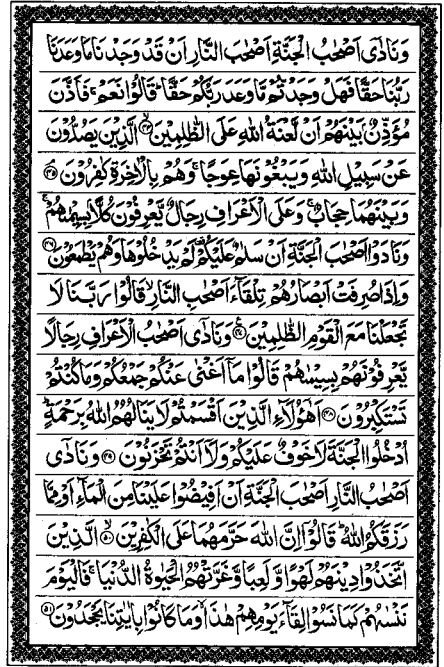 وَنَادٰٓى اَصْحٰبُ الْجَنَّةِ اَصْحٰبَ النَّارِ اَنْ قَدْ وَجَدْنَا مَا وَعَدَنَا
رَبُّنَا حَقًّا فَهَلْ وَجَدْتُّمْ مَّا وَعَدَ رَبُّكُمْ حَقًّا ؕ قَالُوْا نَعَمْ ۚ فَاَذَّنَ
مُؤَذِّنٌۢ بَيْنَهُمْ اَنْ لَّعْنَةُ اللّٰهِ عَلَى الظّٰلِمِيْنَ ۙ﴿۴۴﴾ الَّذِيْنَ يَصُدُّوْنَ
عَنْ سَبِيْلِ اللّٰهِ وَيَبْغُوْنَهَا عِوَجًا ۚ وَهُمْ بِالْاٰخِرَةِ كٰفِرُوْنَ ۘ﴿۴۵﴾
وَبَيْنَهُمَا حِجَابٌ ۚ وَعَلَى الْاَعْرَافِ رِجَالٌ يَّعْرِفُوْنَ كُلًّاۢ بِسِيْمٰىهُمْ ۚ
وَنَادَوْا اَصْحٰبَ الْجَنَّةِ اَنْ سَلٰمٌ عَلَيْكُمْ ۟ لَمْ يَدْخُلُوْهَا وَهُمْ يَطْمَعُوْنَ ﴿۴۶﴾
وَاِذَا صُرِفَتْ اَبْصَارُهُمْ تِلْقَآءَ اَصْحٰبِ النَّارِ ۙ قَالُوْا رَبَّنَا لَا
تَجْعَلْنَا مَعَ الْقَوْمِ الظّٰلِمِيْنَ ﴿۴۷﴾ وَنَادٰٓى اَصْحٰبُ الْاَعْرَافِ رِجَالًا
يَّعْرِفُوْنَهُمْ بِسِيْمٰىهُمْ قَالُوْا مَآ اَغْنٰى عَنْكُمْ جَمْعُكُمْ وَمَا كُنْتُمْ
تَسْتَكْبِرُوْنَ ﴿۴۸﴾ اَهٰٓؤُلَآءِ الَّذِيْنَ اَقْسَمْتُمْ لَا يَنَالُهُمُ اللّٰهُ بِرَحْمَةٍ ؕ
اُدْخُلُوا الْجَنَّةَ لَا خَوْفٌ عَلَيْكُمْ وَلَآ اَنْتُمْ تَحْزَنُوْنَ ﴿۴۹﴾ وَنَادٰٓى
اَصْحٰبُ النَّارِ اَصْحٰبَ الْجَنَّةِ اَنْ اَفِيْضُوْا عَلَيْنَا مِنَ الْمَآءِ اَوْ مِمَّا
رَزَقَكُمُ اللّٰهُ ؕ قَالُوْٓا اِنَّ اللّٰهَ حَرَّمَهُمَا عَلَى الْكٰفِرِيْنَ ۙ﴿۵۰﴾ الَّذِيْنَ
اتَّخَذُوْا دِيْنَهُمْ لَهْوًا وَّلَعِبًا وَّغَرَّتْهُمُ الْحَيٰوةُ الدُّنْيَا ۚ فَالْيَوْمَ
نَنْسٰىهُمْ كَمَا نَسُوْا لِقَآءَ يَوْمِهِمْ هٰذَا ۙ وَمَا كَانُوْا بِاٰيٰتِنَا يَجْحَدُوْنَ ﴿۵۱﴾